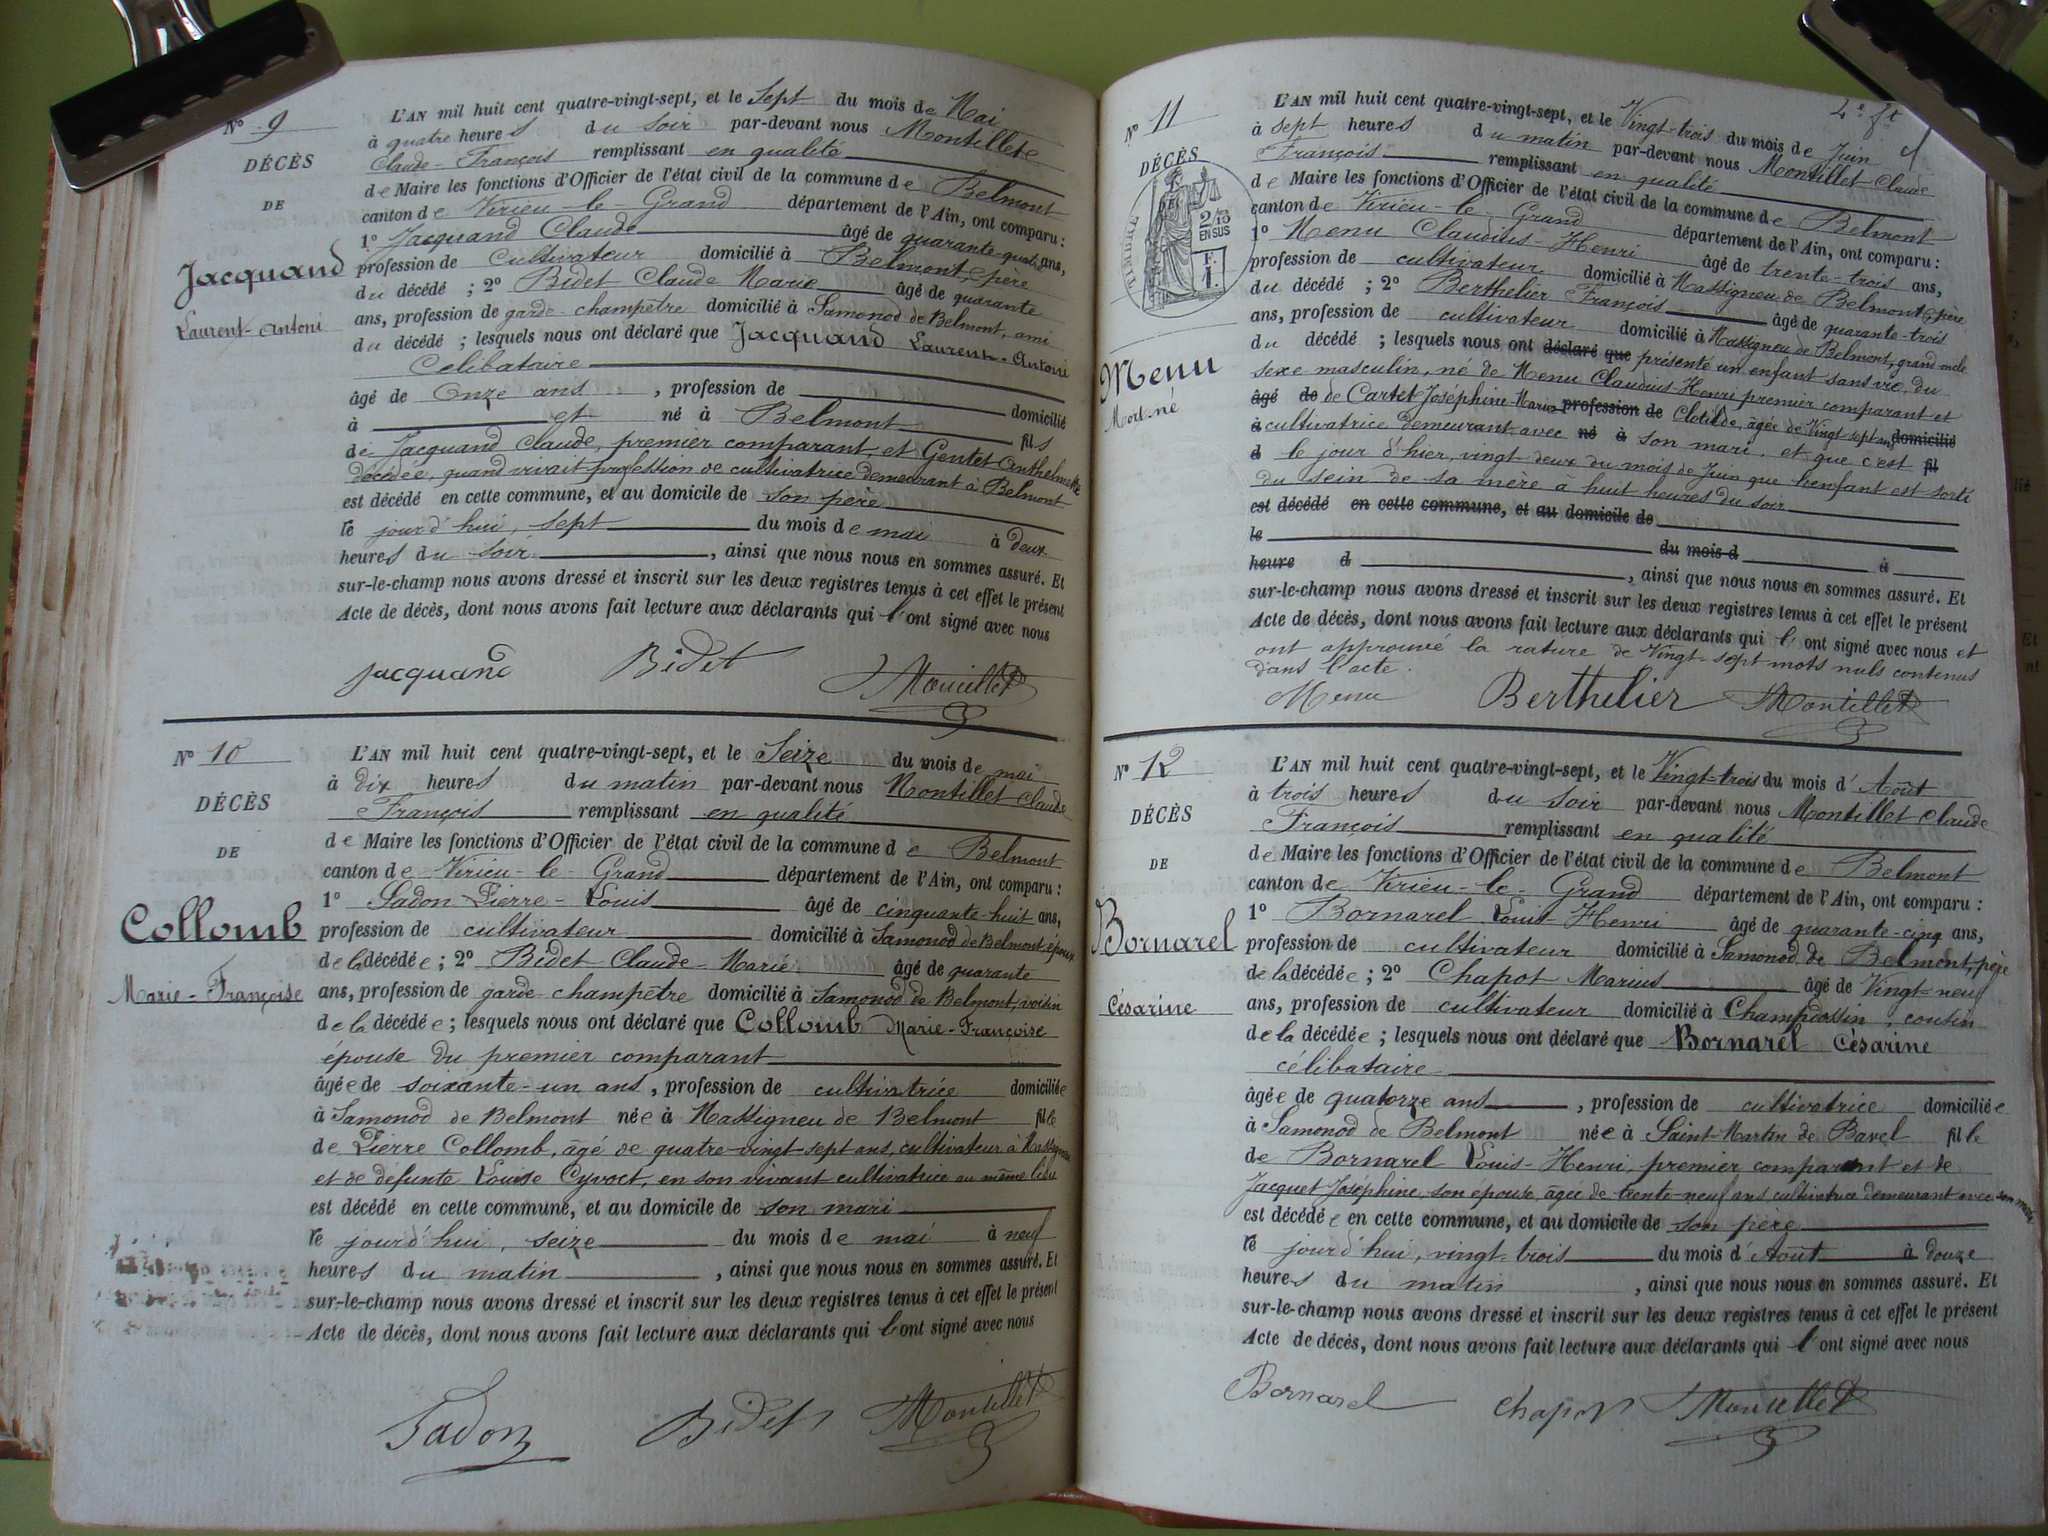 N° 9
DÉCÈS
DE
Jacquand
Laurent-Antoni
L'AN mil huit cent quatre-vingt-sept, et le Sept du mois de Mai
à quatre heures du soir par-devant nous Montillet
Claude-François remplissant en qualité
de Maire les fonctions d'Officier de l'état civil de la commune de Belmont
canton de Virieu-le-Grand département de l'Ain, ont comparu :
1° Jacquand Claude âgé de quarante-quatre ans,
profession de cultivateur domicilié à Belmont, père
du décédé ; 2° Bidet Claude Marie âgé de quarante
ans, profession de garde-champêtre domicilié à Samonod de Belmont, ami
du décédé ; lesquels nous ont déclaré que Jacquand Laurent-Antoni
Célibataire
âgé de Onze ans , profession de domicilié
à et né à Belmont fils
de Jacquand Claude, premier comparant, et Gentet Anthelmette
décédée, quand vivait profession de cultivatrice demeurant à Belmont
est décédé en cette commune, et au domicile de son père
le jourd'hui, sept du mois de mai à deux
heures du soir , ainsi que nous nous en sommes assuré. Et
sur-le-champ nous avons dressé et inscrit sur les deux registres tenus à cet effet le présent
Acte de décès, dont nous avons fait lecture aux déclarants qui l'ont signé avec nous
Jacquand Bidet Montillet
N° 10
DÉCÈS
DE
Collomb
Marie-Françoise
L'AN mil huit cent quatre-vingt-sept, et le Seize du mois de mai
à dix heures du matin par-devant nous Montillet Claude
François remplissant en qualité
de Maire les fonctions d'Officier de l'état civil de la commune de Belmont
canton de Virieu-le-Grand département de l'Ain, ont comparu :
1° Sadon Pierre-Louis âgé de cinquante-huit ans,
profession de cultivateur domicilié à Samonod de Belmont, époux
de la décédée ; 2° Bidet Claude-Marie âgé de quarante
ans, profession de garde-champêtre domicilié à Samonod de Belmont, voisin
de la décédée ; lesquels nous ont déclaré que Collomb Marie-Françoise
épouse du premier comparant
âgée de soixante-un ans , profession de cultivatrice domiciliée
à Samonod de Belmont née à Massigneu de Belmont fille
de Pierre Collomb, âgé de quatre-vingt-sept ans, cultivateur à Massigneu
et de défunte Louise Cyvoct, en son vivant cultivatrice au même lieu
est décédé en cette commune, et au domicile de son mari
le jourd'hui, seize du mois de mai à neuf
heures du matin , ainsi que nous nous en sommes assuré. Et
sur-le-champ nous avons dressé et inscrit sur les deux registres tenus à cet effet le présent
Acte de décès, dont nous avons fait lecture aux déclarants qui l'ont signé avec nous
Sadon Bidet Montillet
4e ft
N° 11
DÉCÈS
DE
TIMBRE
2/10 EN SUS
Menu
Mort-né
L'AN mil huit cent quatre-vingt-sept, et le Vingt-trois du mois de Juin
à sept heures du matin par-devant nous Montillet-Claude
François remplissant en qualité
de Maire les fonctions d'Officier de l'état civil de la commune de Belmont
canton de Virieu-le-Grand département de l'Ain, ont comparu :
1° Menu Claudius-Henri âgé de trente-trois ans,
profession de cultivateur domicilié à Massigneu de Belmont, père
du décédé ; 2° Berthelier François âgé de quarante-trois
ans, profession de cultivateur domicilié à Massigneu de Belmont, grand oncle
du décédé ; lesquels nous ont déclaré que présenté un enfant sans vie, du
sexe masculin, né de Menu Claudius-Henri premier comparant et
âgé de de Cartet Joséphine-Marie profession de Clotilde, âgée de Vingt-sept ans domicilié
à cultivatrice demeurant avec né à son mari, et que c'est fil
d le jour d'hier, vingt deux du mois de Juin que l'enfant est sorti
du sein de sa mère à huit heures du soir
est décédé en cette commune, et au domicile de
le du mois d à
heure d , ainsi que nous nous en sommes assuré. Et
sur-le-champ nous avons dressé et inscrit sur les deux registres tenus à cet effet le présent
Acte de décès, dont nous avons fait lecture aux déclarants qui l'ont signé avec nous et
ont approuvé la rature de Vingt-sept mots nuls contenus
dans l'acte.
Menu Berthelier Montillet
N° 12
DÉCÈS
DE
Bornarel
Césarine
L'AN mil huit cent quatre-vingt-sept, et le Vingt-trois du mois d'Août
à trois heures du soir par-devant nous Montillet Claude
François remplissant en qualité
de Maire les fonctions d'Officier de l'état civil de la commune de Belmont
canton de Virieu-le-Grand département de l'Ain, ont comparu :
1° Bornarel Louis Henri âgé de quarante-cinq ans,
profession de cultivateur domicilié à Samonod de Belmont, père
de la décédée ; 2° Chapot Marius âgé de Vingt-neuf
ans, profession de cultivateur domicilié à Champdossin, cousin
de la décédée ; lesquels nous ont déclaré que Bornarel Césarine
célibataire
âgée de quatorze ans , profession de cultivatrice domiciliée
à Samonod de Belmont née à Saint-Martin de Bavel fille
de Bornarel Louis-Henri, premier comparant et de
Jacquet Joséphine, son épouse, âgée de trente-neuf ans cultivatrice demeurant avec son mari
est décédée en cette commune, et au domicile de son père
le jourd'hui, vingt-trois du mois d'Août à douze
heures du matin , ainsi que nous nous en sommes assuré. Et
sur-le-champ nous avons dressé et inscrit sur les deux registres tenus à cet effet le présent
Acte de décès, dont nous avons fait lecture aux déclarants qui l'ont signé avec nous
Bornarel Chapot Montillet